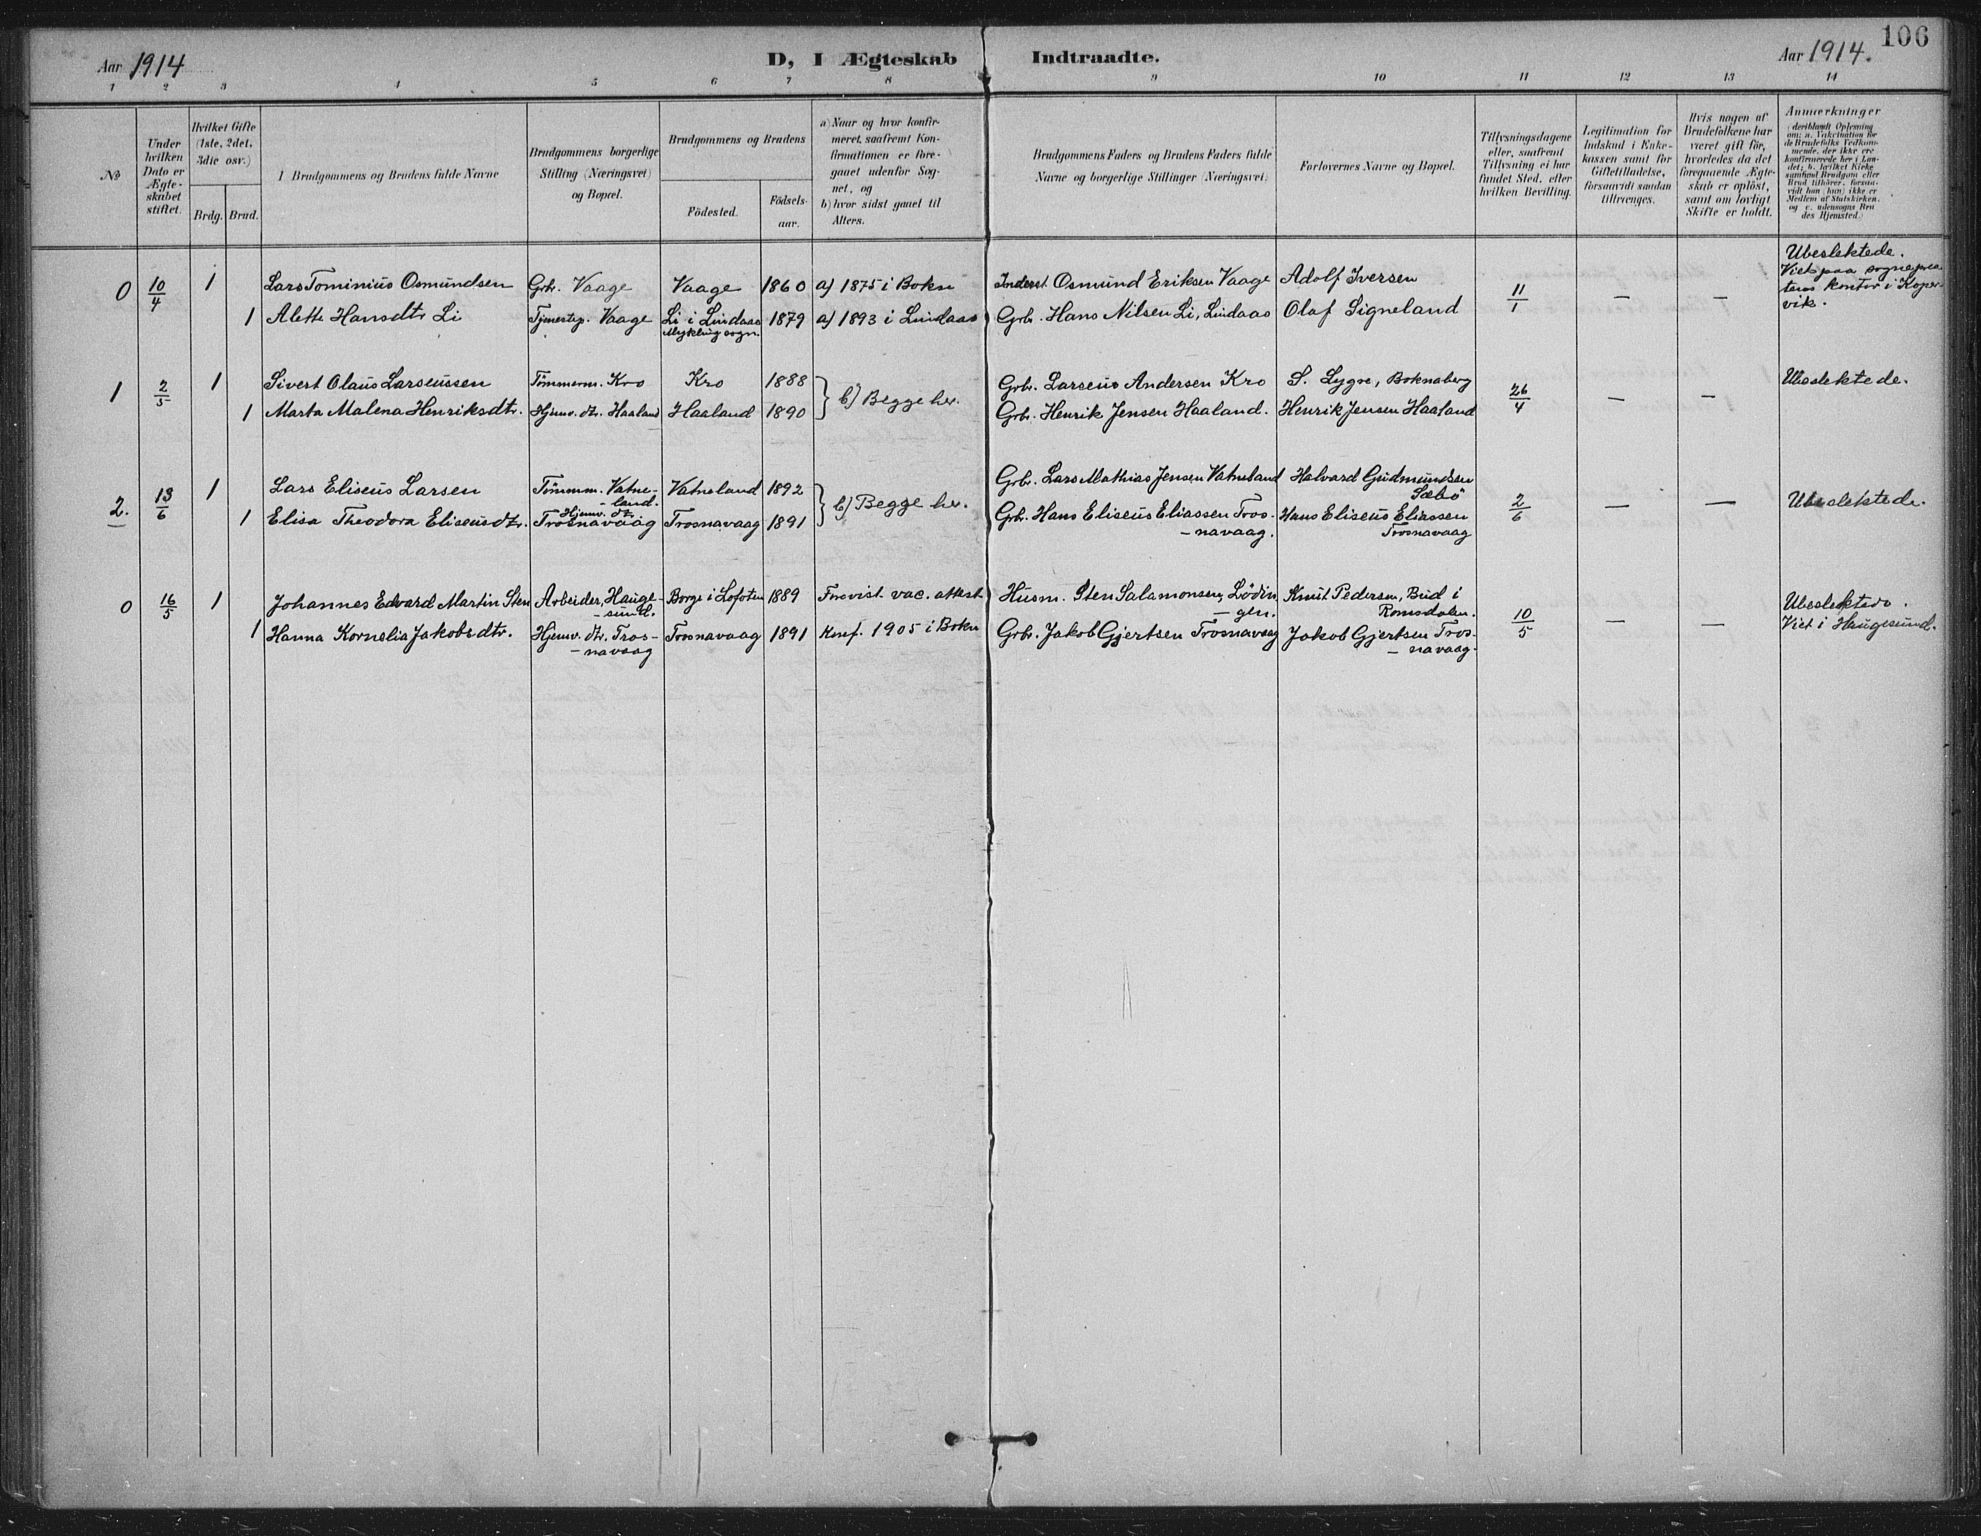 106
Aar 1914
D, I Ægteskab Indtraadte.
Aar 1914.
1 2 3 4 5 6 7 8 9 10 11 12 13 14
No
Under hvilken Dato er Ægteskabet stiftet.
Hvilket Gifte (1ste, 2det, 3die osv.)
Brdg. Brud.
1 Brudgommens og Brudens fulde Navne
Brudgommens borgerlige Stilling (Næringsvei) og Bopæl.
Brudgommens og Brudens
Födested.
Födselsaar.
a) Naar og hvor konfirmeret, saafremt Konfirmationen er foregaaet udenfor Sognet, og
b) hvor sidst gaaet til Alters.
Brudgommens Faders og Brudens Faders fulde Navne og borgerlige Stillinger (Næringsvei)
Forlovernes Navne og Bopæl.
Tillysningsdagene eller, saafremt Tillysning ei har fundet Sted, efter hvilken Bevilling.
Legitimation for Indskud i Enkekassen samt for Giftetilladelse, forsaavidt saadan tiltrænges.
Hvis nogen af Brudefolkene har været gift før, hvorledes da det foregaaende Ægteskab er opløst, samt om lovligt Skifte er holdt.
Anmærkninger
(deriblandt Oplysning om: a. Vakcination for de Brudefolks Vedkommende, der ikke ere konfirmerede her i Landet; b. hvilket Kirkesamfund Brudgom eller Brud tilhörer, forsaavidt han (hun) ikke er Medlem af Statskirken, og c. udensogns Brudes Hjemsted.)
0 10/4 1 Lars Tominius Osmundsen Grb. Vaage Vaage 1860 a) 1875 i Bokn Inderst. Osmund Eriksen Vaage Adolf Iversen 11/1 — — Ubeslektede.
Viet paa sognepres-
tens kontor i Koper-
vik.
1 Alette Hansdtr Li Tjenestep. Vaage Li i Lindaas 1879 a) 1893 i Lindaas Grb. Hans Nilsen Li, Lindaas Olaf Signeland
Myking sogn.
1 2/5 1 Sivert Olaus Larseussen Tömmerm. Kro Kro 1888 b) Begge her. Grb. Larseus Andersen Kro S. Lygre, Boknaberg 26/4 — — Ubeslektede.
1 Marta Malena Henriksdtr. Hjemv. dtr. Haaland Haaland 1890 Grb. Henrik Jensen Haaland. Henrik Jensen Haaland
2. 13/6 1 Lars Eliseus Larsen Tömmerm. Vatne-
-land. Vatneland 1892 b) Begge her. Grb. Lars Mathias Jensen Vatneland Halvard Gudmundsen
Sæbö 2/6 — — Ubeslektede.
1 Elisa Theodora Eliseusdtr. Hjemv. dtr.
Trosnavaag Trosnavaag 1891 Grb. Hans Eliseus Eliassen Tros-
-navaag. Hans Eliseus Eliassen
Trosnavaag
0 16/5 1 Johannes Edvard Martin Sten Arbeider, Hauge-
-sund. Borge i Lofoten 1889 Forevist vac. attest Husm. Sten Salamonsen, Lödin-
-gen. Knut Pedersen, Bud i
Romsdalen. 10/5 — — Ubeslektede.
Viet i Haugesund.
1 Hanna Kornelia Jakobsdtr. Hjemv. dtr. Tros-
-navaag Trosnavaag 1891 Konf. 1905 i Bokn Grb. Jakob Gjertsen Trosnavaag Jakob Gjertsen Tros-
-navaag.